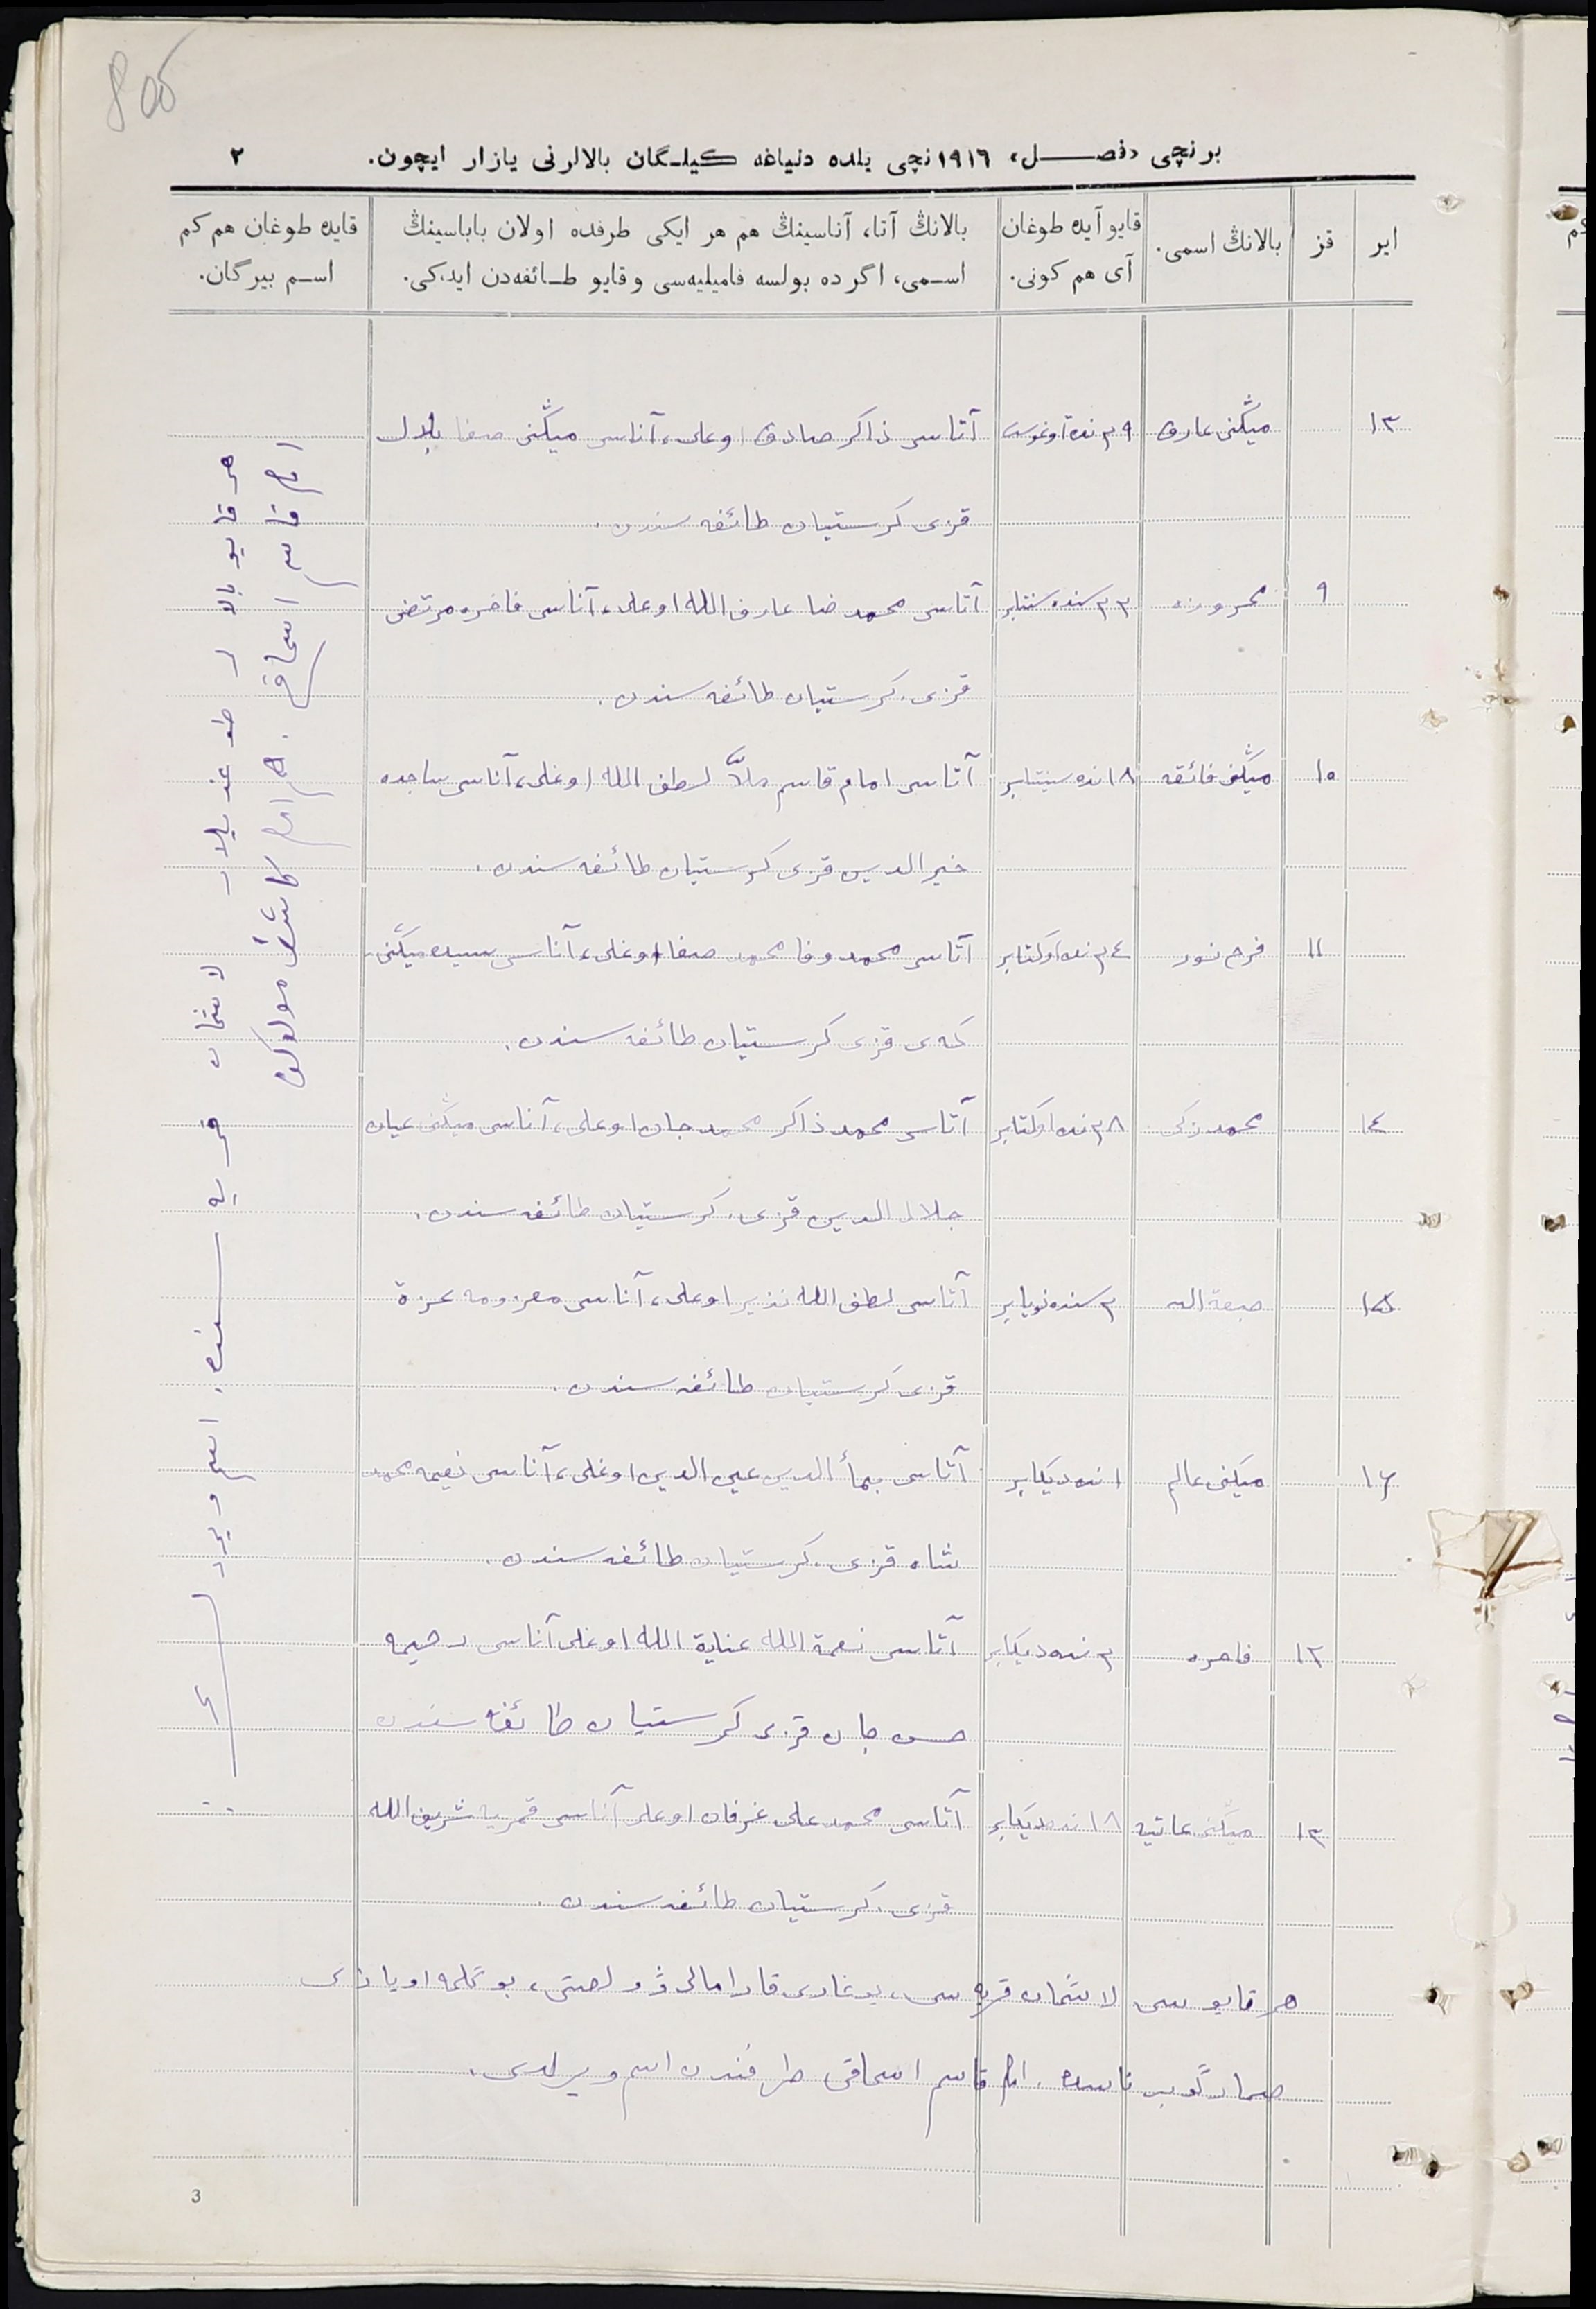 805
برنچی «فصـــــل» ١٩١٦نچی یلده دنیاغه کیلـگان بالالرنی یازار ایچون.
٢
ایر
قز
بالانڭ اسمی.
قایو آیده طوغان آی هم کونی.
بالانڭ آتا، آناسینڭ هم هر ایکی طرفده اولان باباسینڭ اسـمی، اگر ده بولسه فامیلیه‌سی و قایو طـائفه‌دن ایدکی.
قایده طوغان هم کم اسـم بیرگان.
١٣
میڭنی عارف
٢٩ نده اوغوست
آتاسی ذاکر صادق اوغلی، آناسی میڭنی صفا بلال
قزی کرستیان طائفه سندن.
٩
محروزه
٢٣ سنده سنتابر
آتاسی محمد ضا عارف الله اوغلی، آناسی فاخره مرتضی
قزی. کرستیان طائفه سندن.
١٠
میڭنی فائقه
١٨ نده سینتابر
آتاسی امام قاسم ملاّ لطف الله اوغلی، آناسی ساجده
خیر الدین قزی کرستیان طائفه سندن.
١١
فرح نور
٢٤ نده اوکتابر
آتاسی محمد وفا محمد صفا اوغلی، آناسی سیده میڭنی
قزی کرستیان طائفه سندن.
١٤
محمد زکی
٢٨ نده اوکتابر
آتاسی محمد ذاکر محمد جان اوغلی، آناسی میڭنی عیان
جلال الدین قزی. کرستیان طائفه سندن.
١٥
صبغة الله
٢ سنده نویابر
آتاسی لطف الله نذیر اوغلی، آناسی معزومه عزة
قزی کرستیان طائفه سندن.
١٦
میڭنی عالم
١ نده دیکابر
آتاسی بهأ الدین عین الدین اوغلی، آناسی نعیمه محمد
شاه قزی. کرستیان طائفه سندن.
١٢
فاخره
٢ نده دیکابر
آتاسی نعمة الله عنایة الله اوغلی آناسی رحیمه
حسن جان قزی کرستیان طائفه سندن
١٣
میڭنی عاتیه
١٨ نده دیکابر
آتاسی محمد علی غرفان اوغلی آناسی قمریه شریف الله
قزی. کرستیان طائفه سندن.
هر قایوسی لاشمان قریه سی، یوغاری قارامالی ۋولصتی، بوگلمه اویازی
صمار گوبیرناسنده. امام قاسم اسحاقی طرفندن اسم ویرلدی.
هر قایو بالالر طوغدیلار لاشمان قریه سنده. اسم ویردی
امام قاسم اسحاقی. هم امام
3